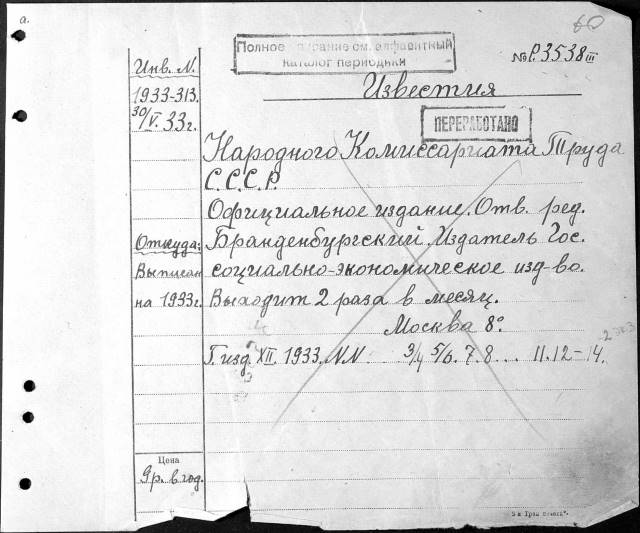 а.
60
Полное описание см. алфавитный
каталог периодики
№ Р.3538 III
Инв. N.
Известия
1933-313.
30/V. 33 г.
ПЕРЕРАБОТАНО
Народного Комиссариата Труда
С.С.С.Р.
Официальное издание. Отв. ред.
Откуда:
Бранденбургский. Издатель Гос.
Выписан
социально-экономическое изд-во.
на 1933г.
Выходит 2 раза в месяц.
Москва 8°.
2 экз
Г. изд. XII. 1933. NN. 3/4 5/6. 7. 8... 11. 12-14.
Цена
9 р. в год.